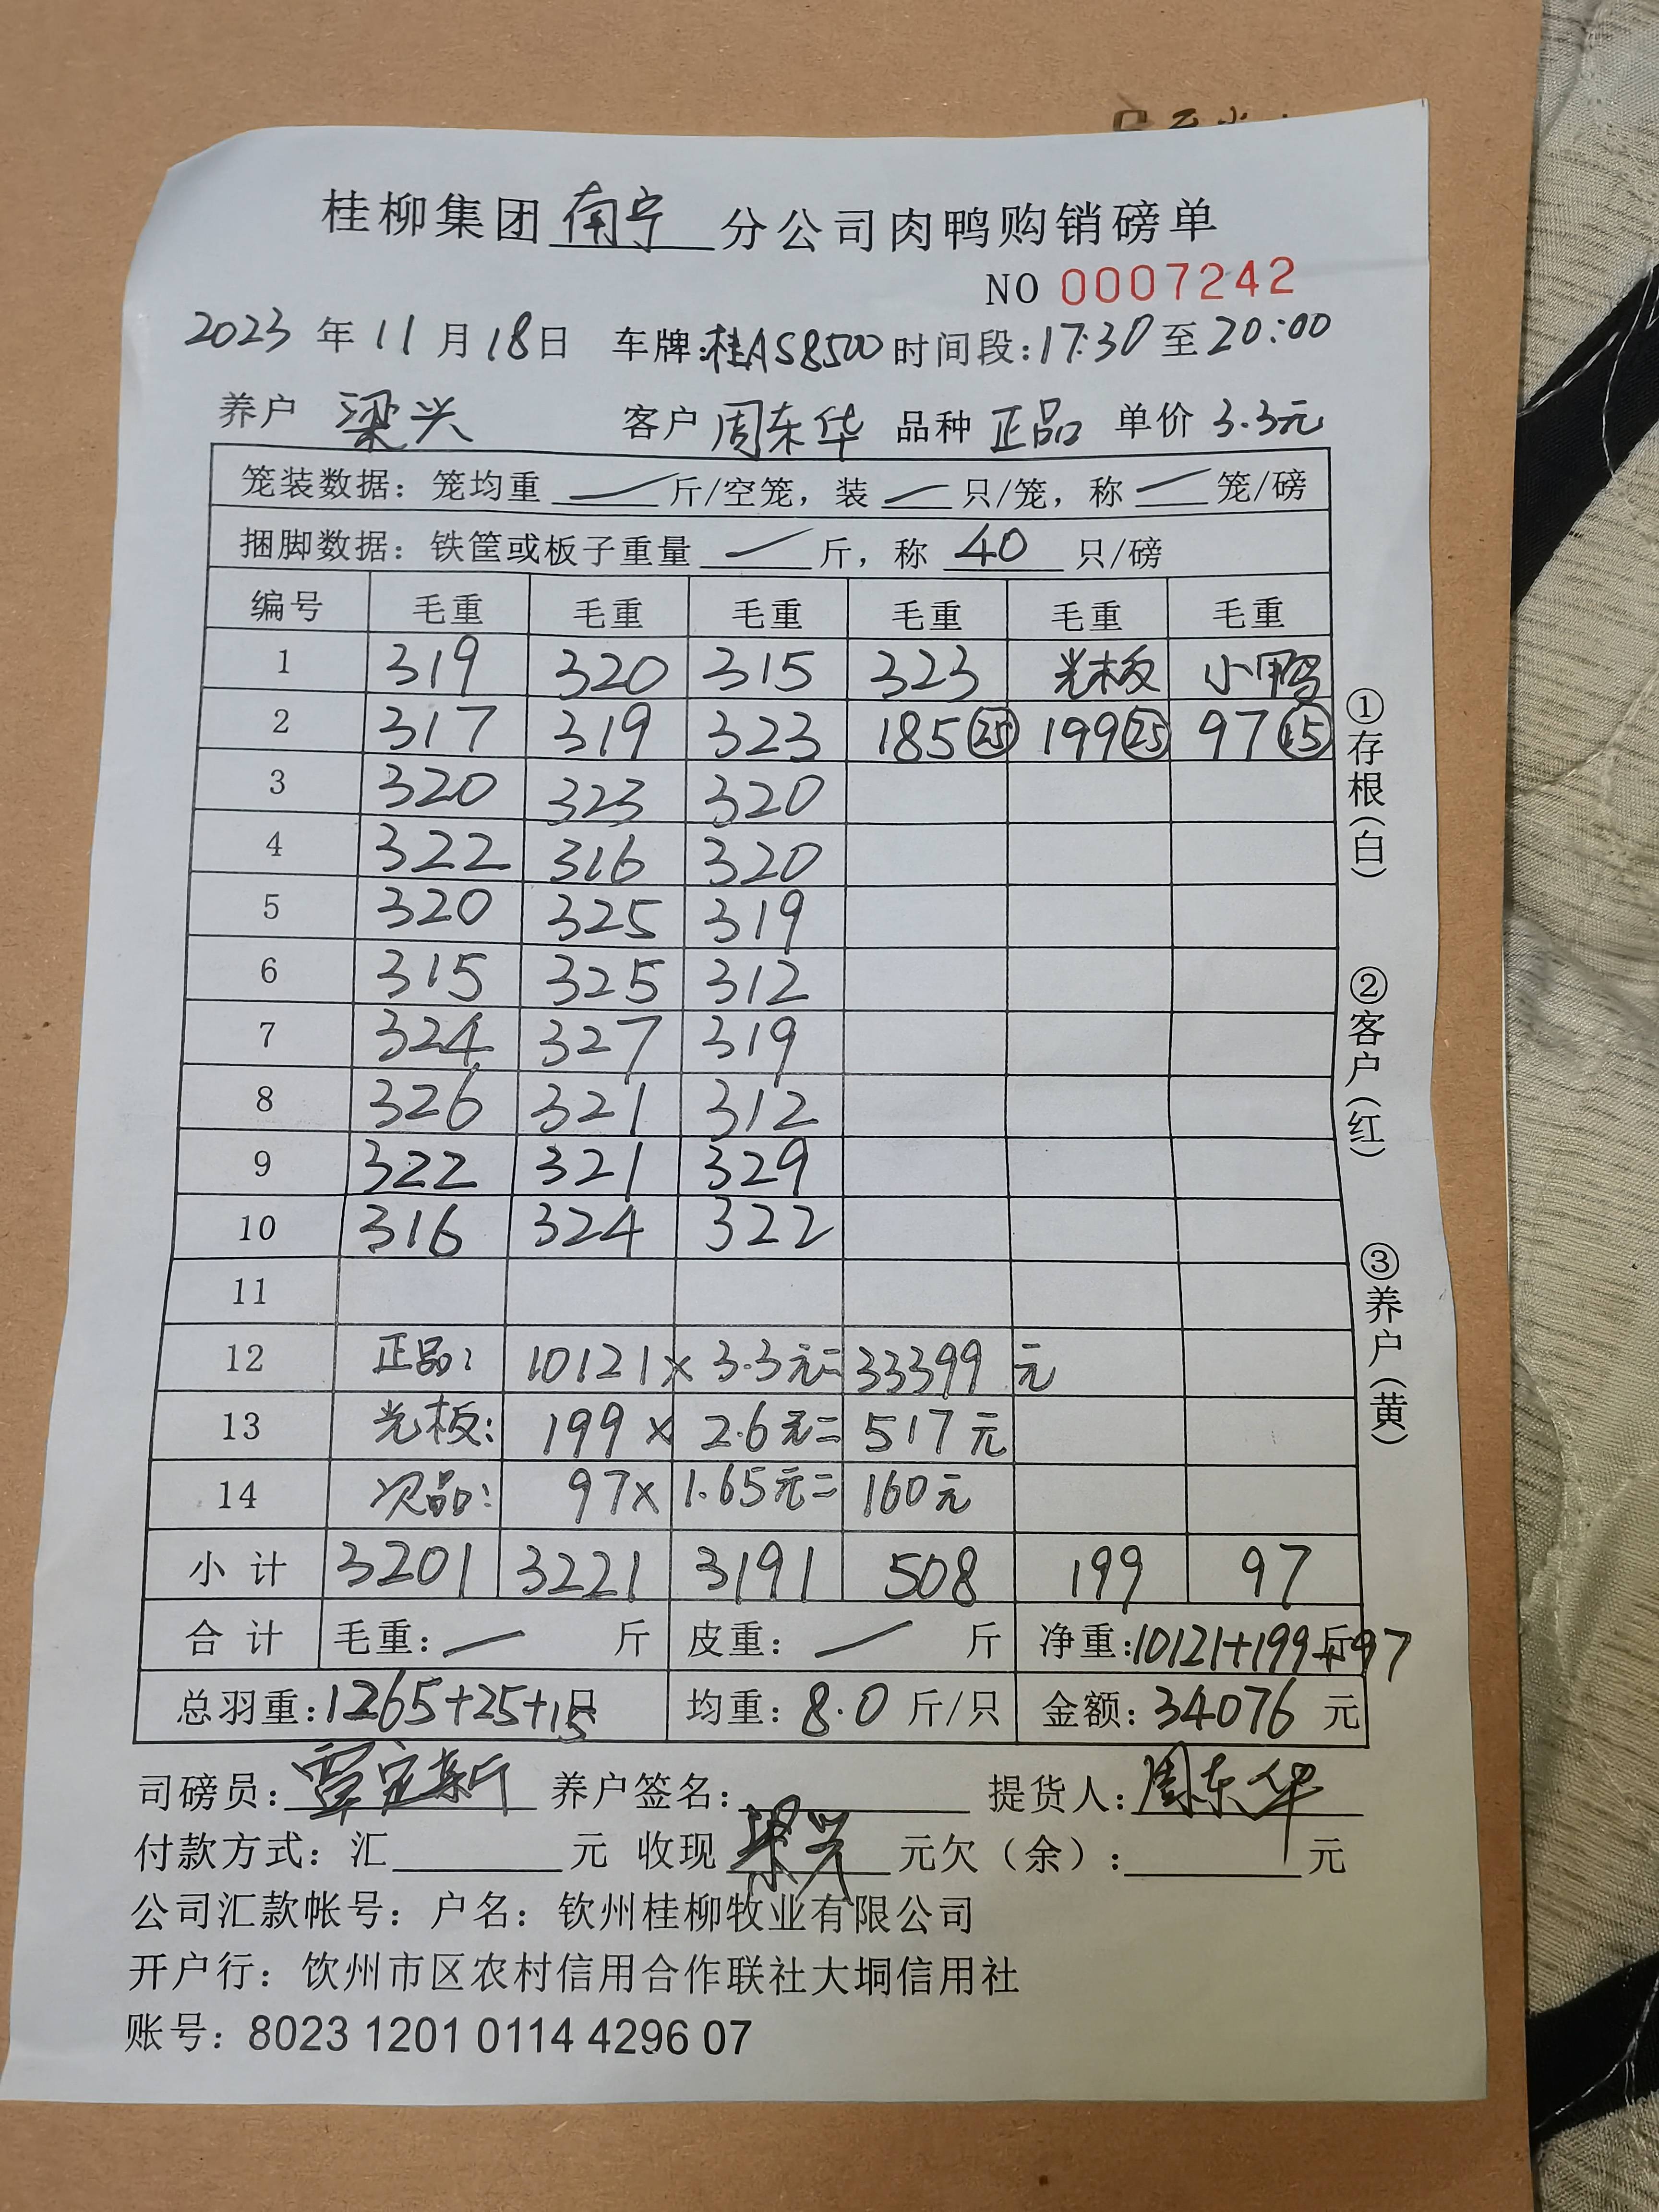 桂柳集团南宁分公司肉鸭购销磅单
NO 0007242
2023年11月18日 车牌:桂AS8500 时间段:17:30至20:00
养户 梁兴 客户 周东华 品种 正品 单价 3.3元
笼装数据：笼均重 — 斤/空笼，装 — 只/笼，称 — 笼/磅
捆脚数据：铁筐或板子重量 — 斤，称 40 只/磅
编号 毛重 毛重 毛重 毛重 毛重 毛重
1 319 320 315 323 光板 小鸭
2 317 319 323 185㉕ 199㉕ 97⑮
3 320 323 320
4 322 316 320
5 320 325 319
6 315 325 312
7 324 327 319
8 326 321 312
9 322 321 329
10 316 324 322
11
12 正品: 10121× 3.3元= 33399 元
13 光板: 199× 2.6元= 517元
14 次品: 97× 1.65元= 160元
小计 3201 3221 3191 508 199 97
合计 毛重: — 斤 皮重: — 斤 净重:10121+199+97斤
总羽重:1265+25+15只 均重:8.0斤/只 金额:34076元
①存根(白) ②客户(红) ③养户(黄)
司磅员:覃定新 养户签名: 梁兴 提货人:周东华
付款方式：汇 元 收现 元欠（余）: 元
公司汇款帐号：户名：钦州桂柳牧业有限公司
开户行：饮州市区农村信用合作联社大垌信用社
账号：8023 1201 0114 4296 07